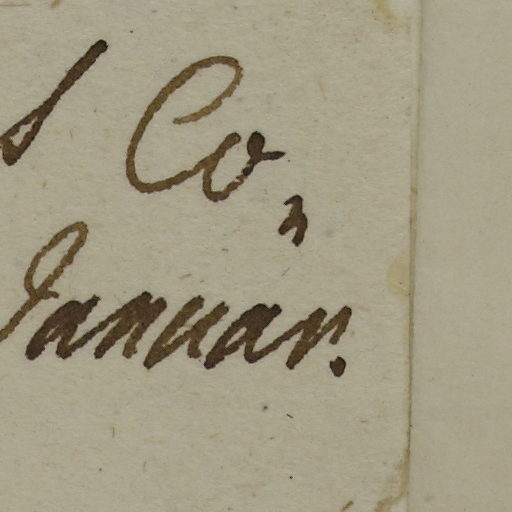 Co,
Januar.